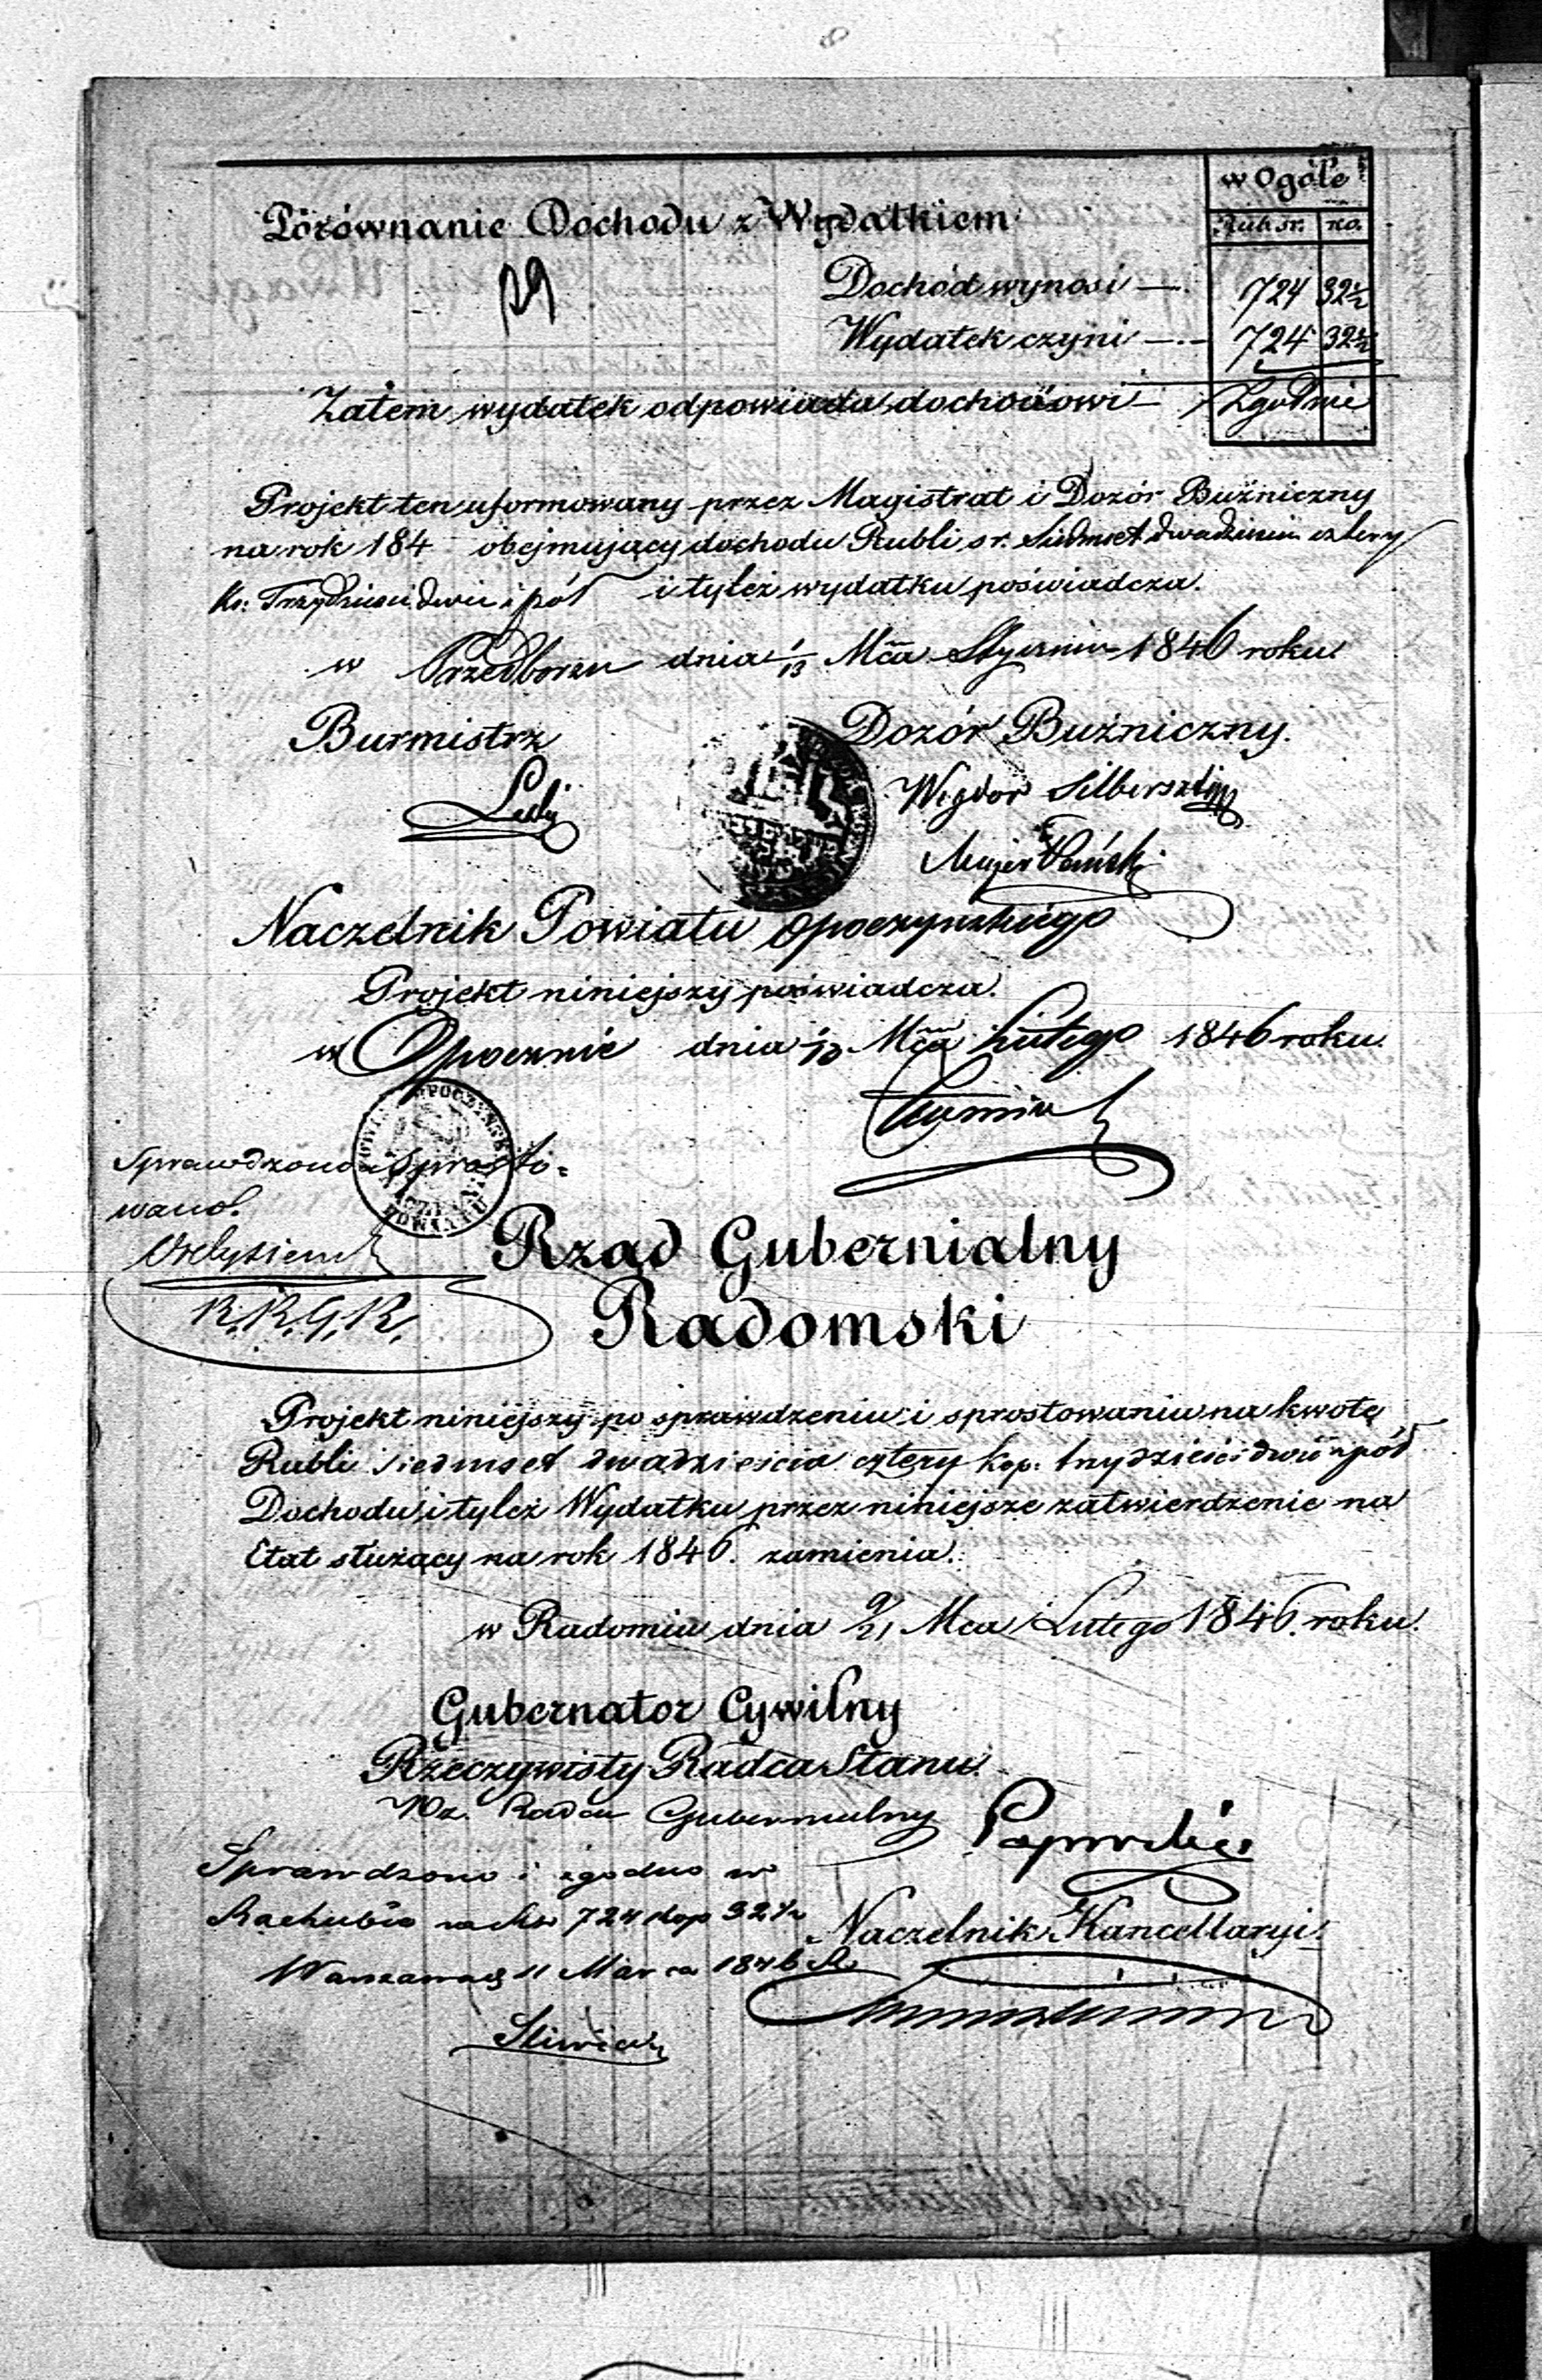 w Ogóle
Rub. sr. ko.
Porównanie Dochodu z Wydatkiem
Dochód wynosi —. 724 32½
Wydatek czyni —.— 724 32½
Zatem wydatek odpowiada dochodowi — Zgodnie
Projekt ten uformowany przez Magistrat i Dozór Bużniczny
na rok 184 obejmujący dochodu Rubli sr. Siedmset dwadzieścia cztery
Ko: Trzydzieści dwie i pół i tyleż wydatku poświadcza.
w Przedborzu dnia 1/13 Mca Stycznia 1846 roku.
Burmistrz Dozór Bużniczny.
Wigdor Silbersztin
Majer
Naczelnik Powiatu Opoczyńskiego
Projekt niniejszy poświadcza.
w Opocznie dnia Mca Lutego 1846 roku.
Sprawdzono i sprosto=
wano.
R.R.G.R.
Rząd Gubernialny
Radomski
Projekt niniejszy po sprawdzeniu i sprostowaniu na kwotę
Rubli siedmset dwadzieścia cztery kop: trzydzieści dwie i pół
Dochodu i tyleż Wydatku przez niniejsze zatwierdzenie na
Etat służący na rok 1846. zamienia.
w Radomiu dnia 9/21 Mca Lutego 1846. roku.
Gubernator Cywilny
Rzeczywisty Radca Stanu.
Wz. Radca Gubernialny
Sprawdzono i zgodno w
Rachubie na Rs 724 kop 32½
Naczelnik Kancellaryi.
Warszawa d 11 Marca 1846 R.